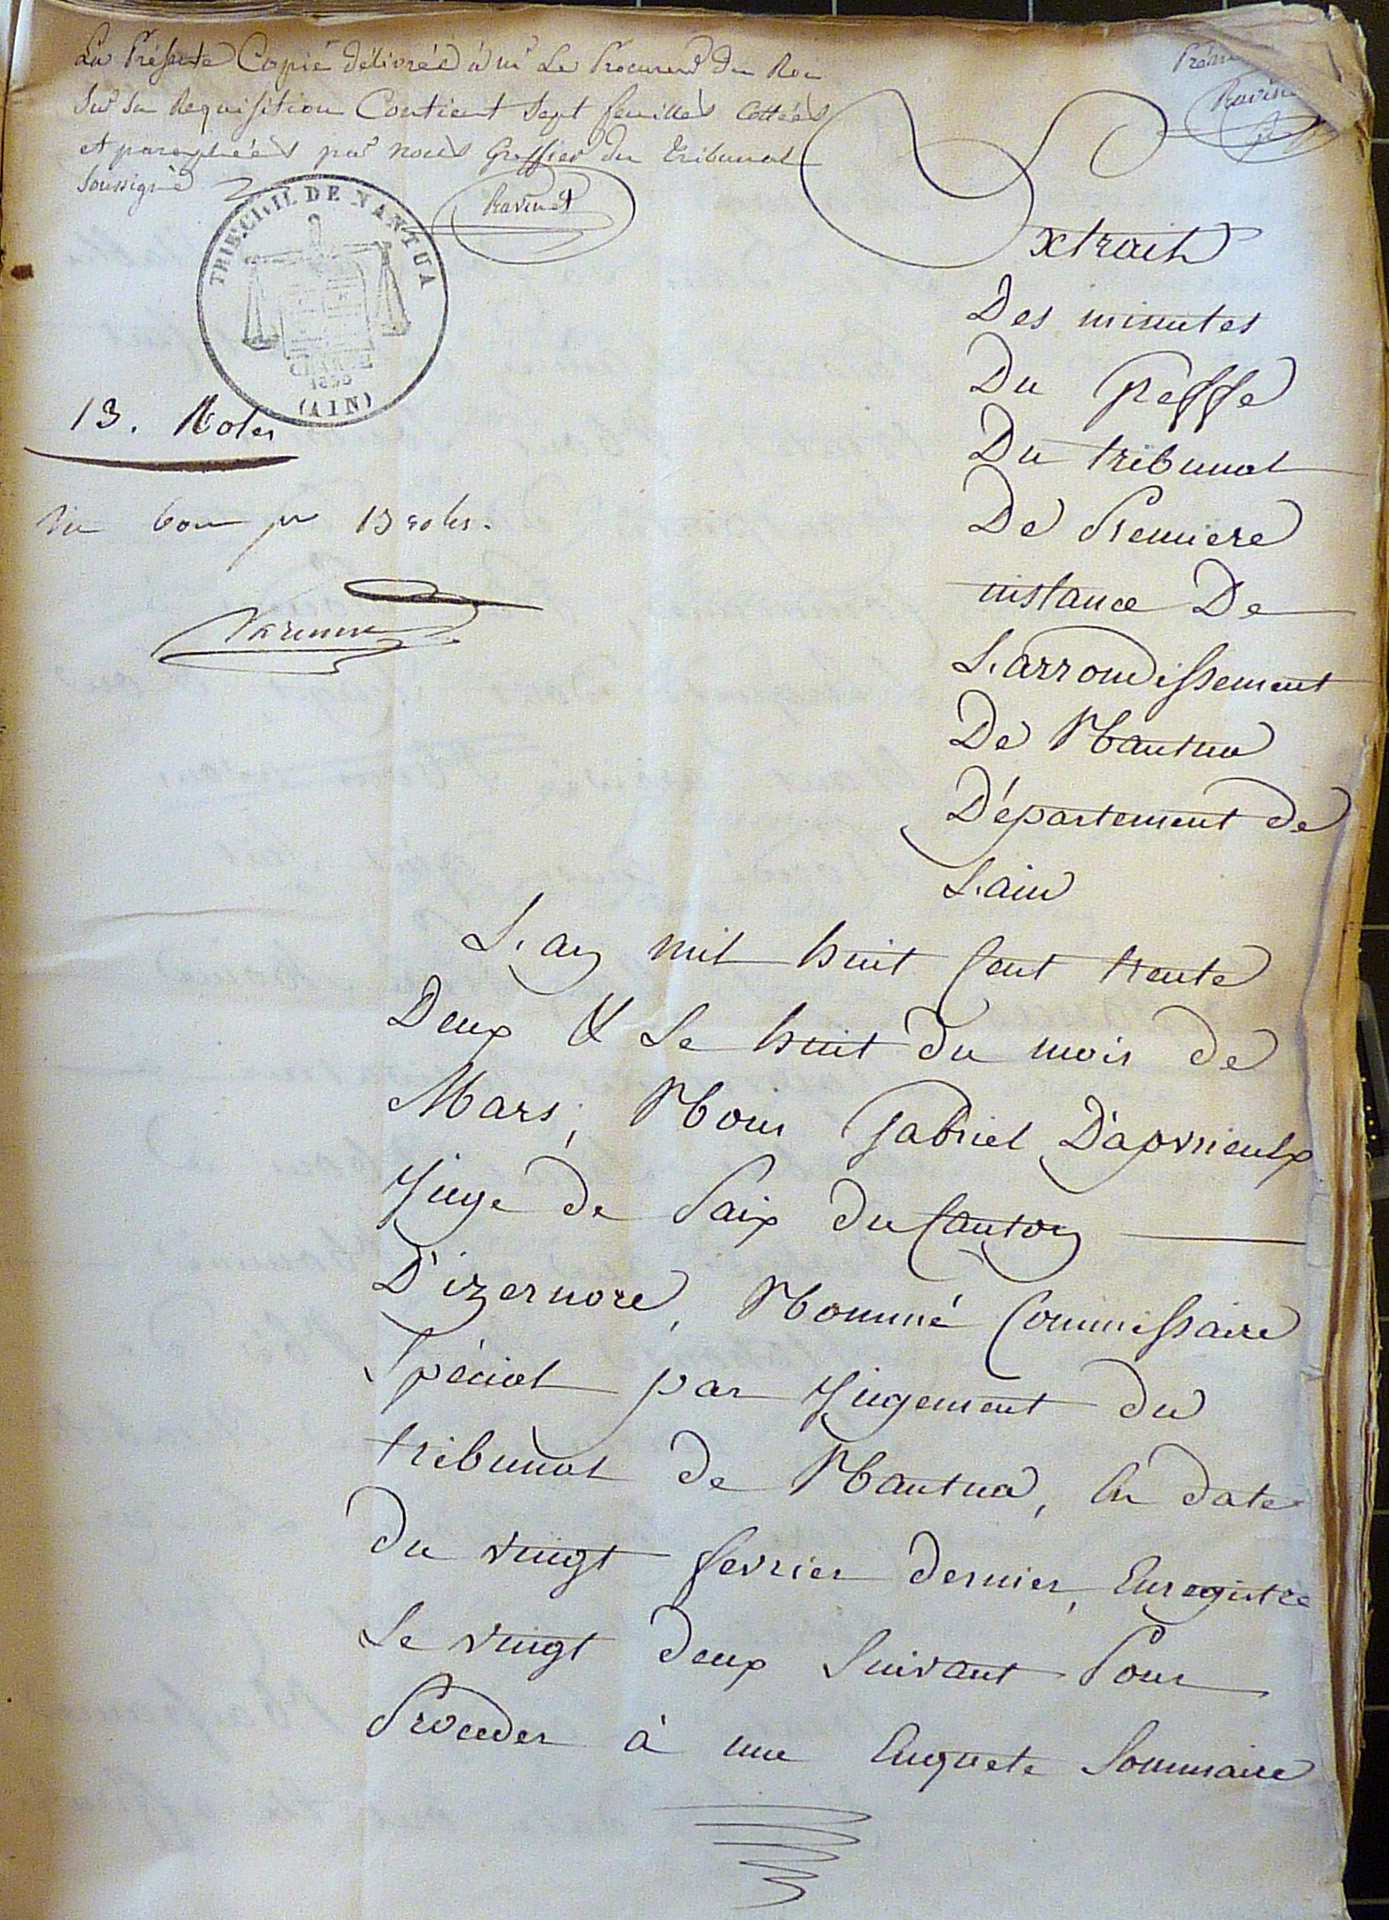 La Présente Copie délivrée à mr Le Procureur du Roi
Sur Sa Requisition Contient Sept feuilles Cottées
et paraphées par nous Greffier du tribunal
Soussigné
Ravinet
TRIB. CIVIL DE NANTUA
CHARTE
1830
(AIN)
13. Roles
Vu bon pr 13 roles.
Extrait
Des minutes
Du Greffe
Du tribunal
De Premiere
instance De
L'arrondissement
De Nantua
Département de
L'ain
L'an mil huit Cent trente
Deux & Le huit du mois de
Mars, Nous Gabriel D'apvrieulx
Juge de Paix du Canton
D'izernore, Nommé Commissaire
Spécial par Jugement du
tribunal de Nantua, En date
du vingt fevrier dernier, Enregistre
Le vingt deux Suivant Pour
Proceder à une Enquete Sommaire